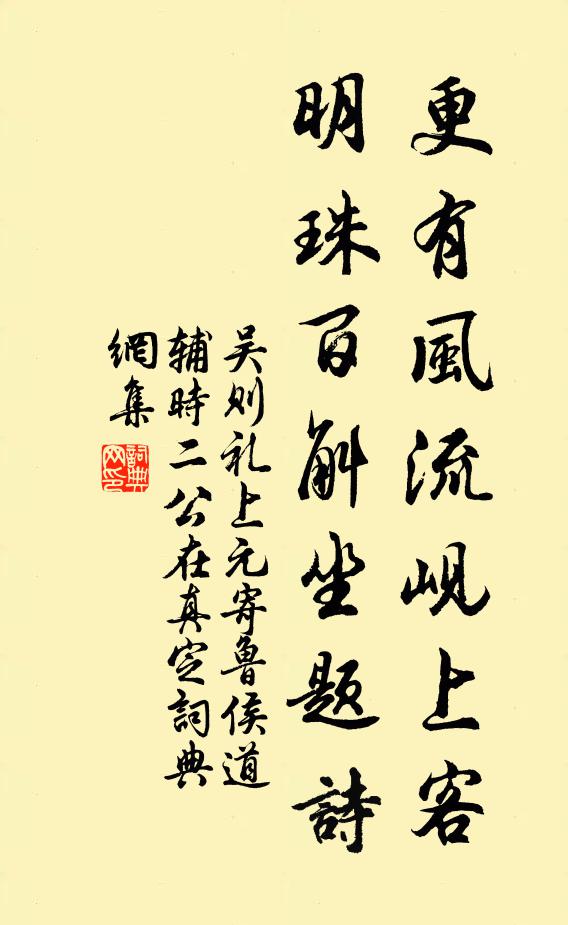 更有風流峴上客
明珠百斛坐題詩
吴则礼上元寄魯侯道
辅時二公在真定詞典
網集
詞典
网印